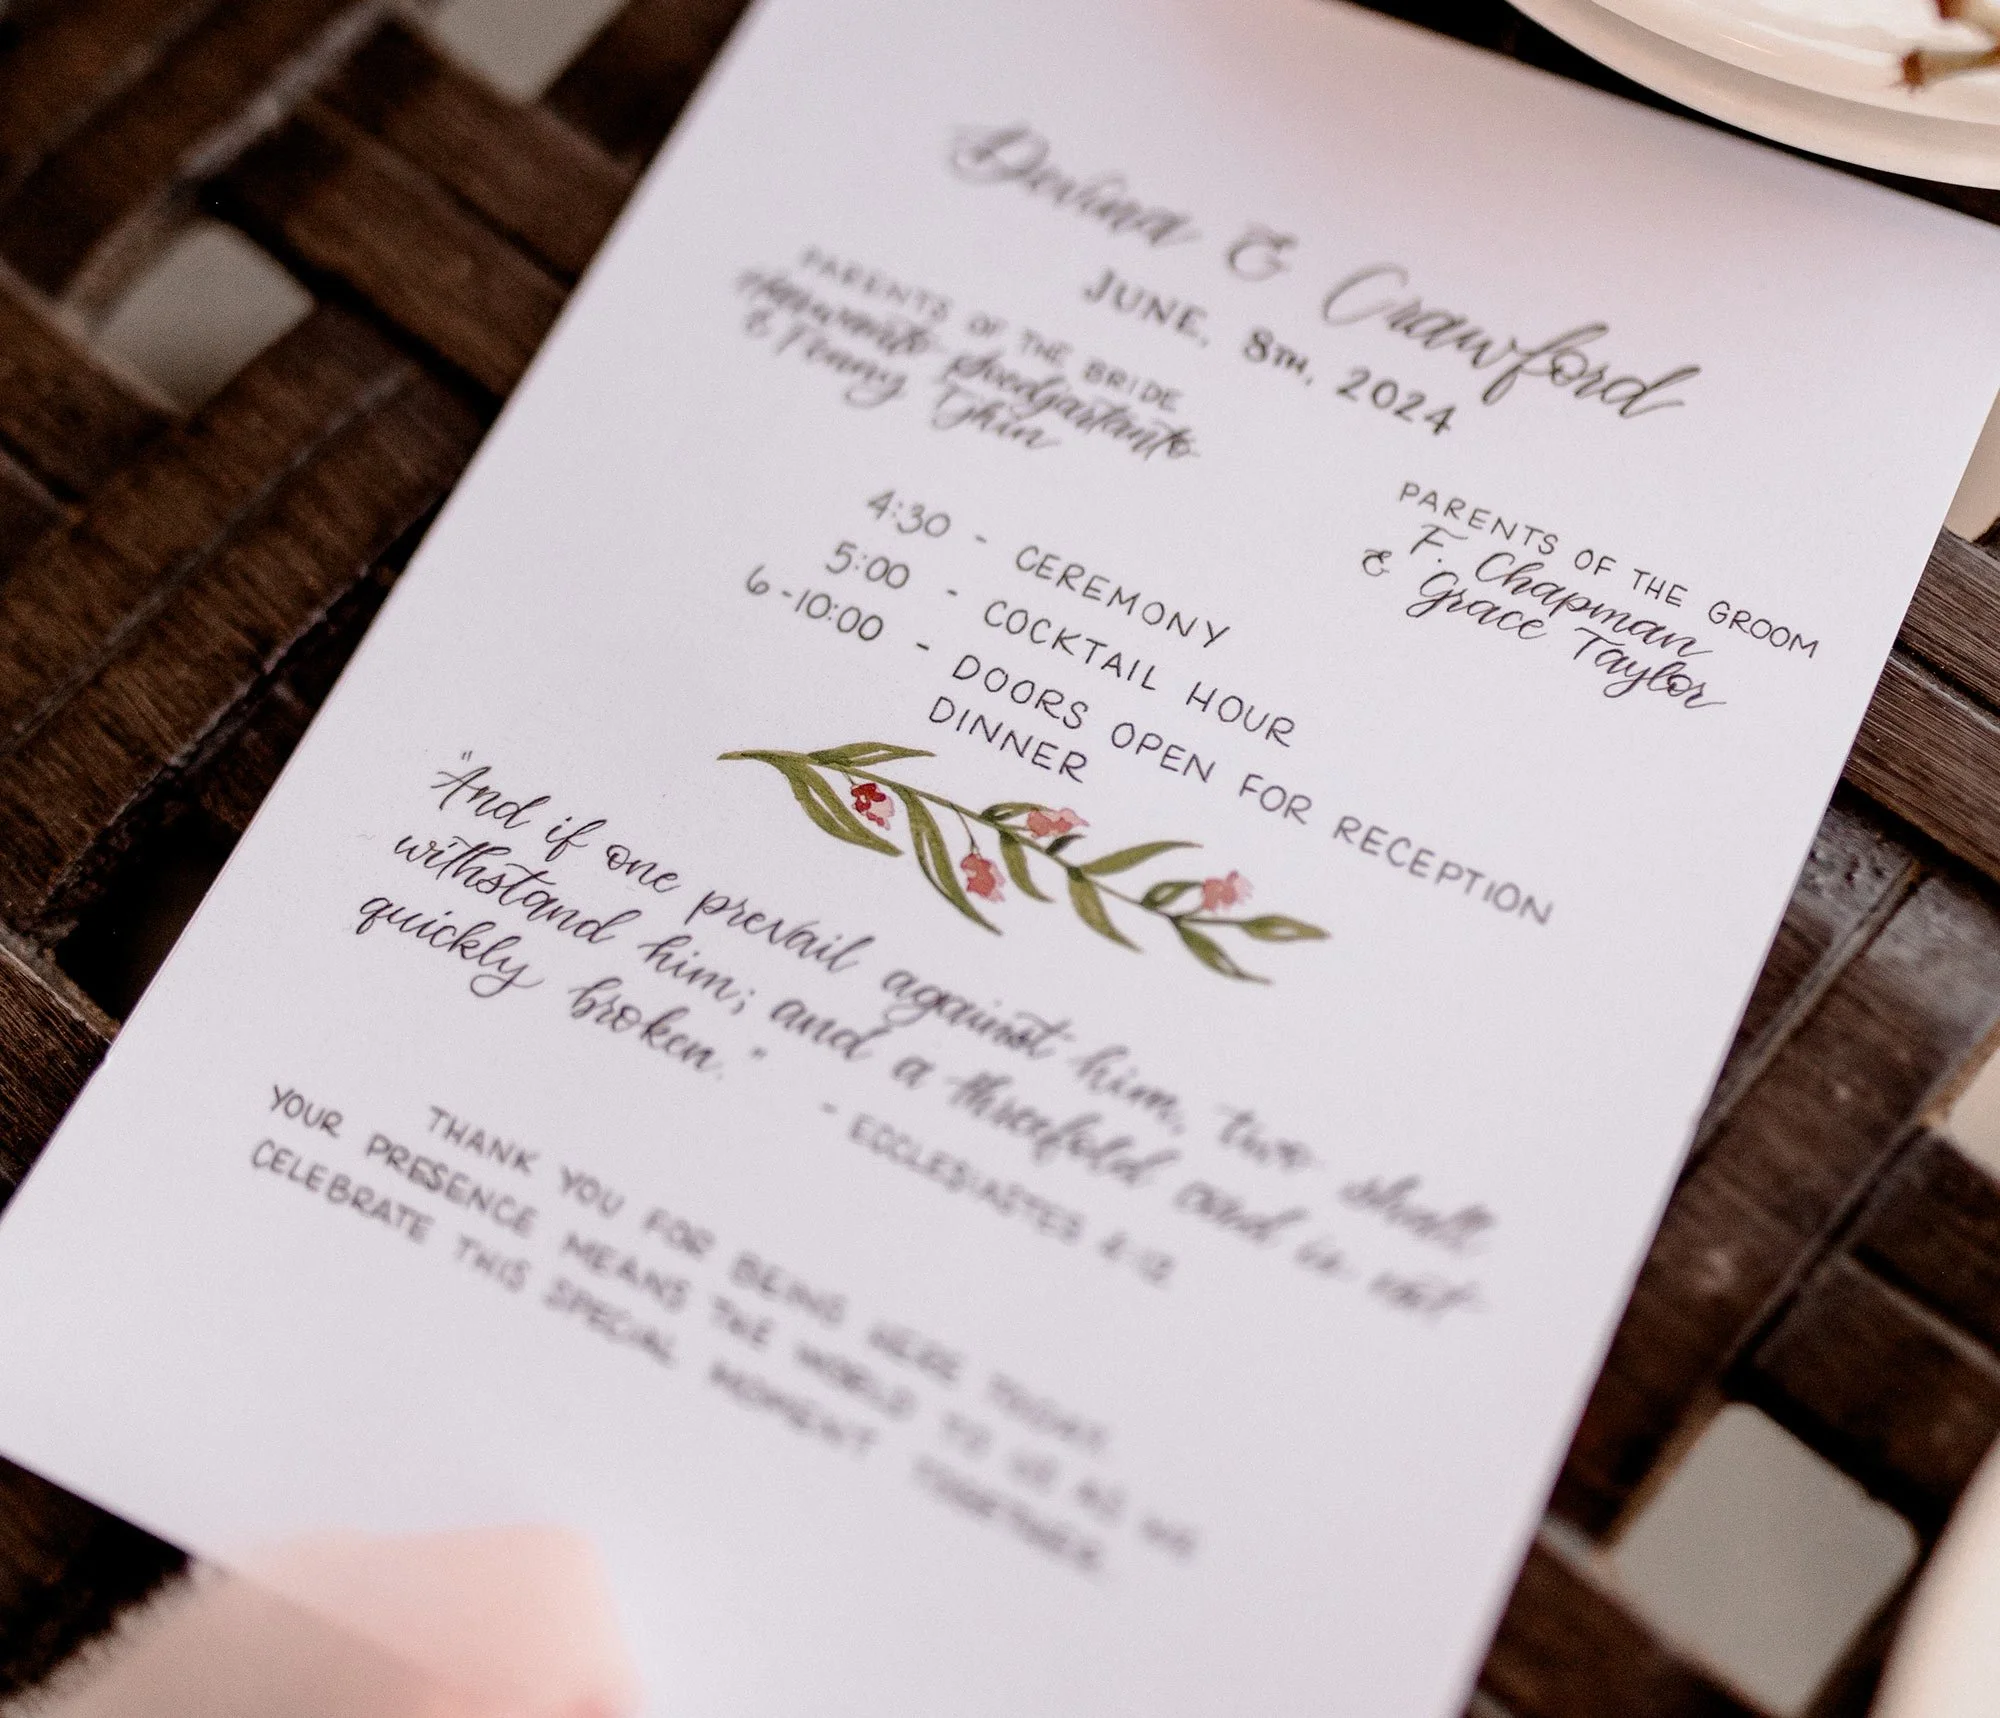 Devina & Crawford
JUNE, 8TH, 2024
PARENTS OF THE BRIDE
& Fenny Ghin
PARENTS OF THE GROOM
F. Chapman
& Grace Taylor
4:30 - CEREMONY
5:00 - COCKTAIL HOUR
6-10:00 - DOORS OPEN FOR RECEPTION
DINNER
"And if one prevail against him, two shall
withstand him; and a threefold cord is not
quickly broken."
- ECCLESIASTES 4:12
THANK YOU FOR BEING HERE TODAY.
YOUR PRESENCE MEANS THE WORLD TO US AS WE
CELEBRATE THIS SPECIAL MOMENT TOGETHER.